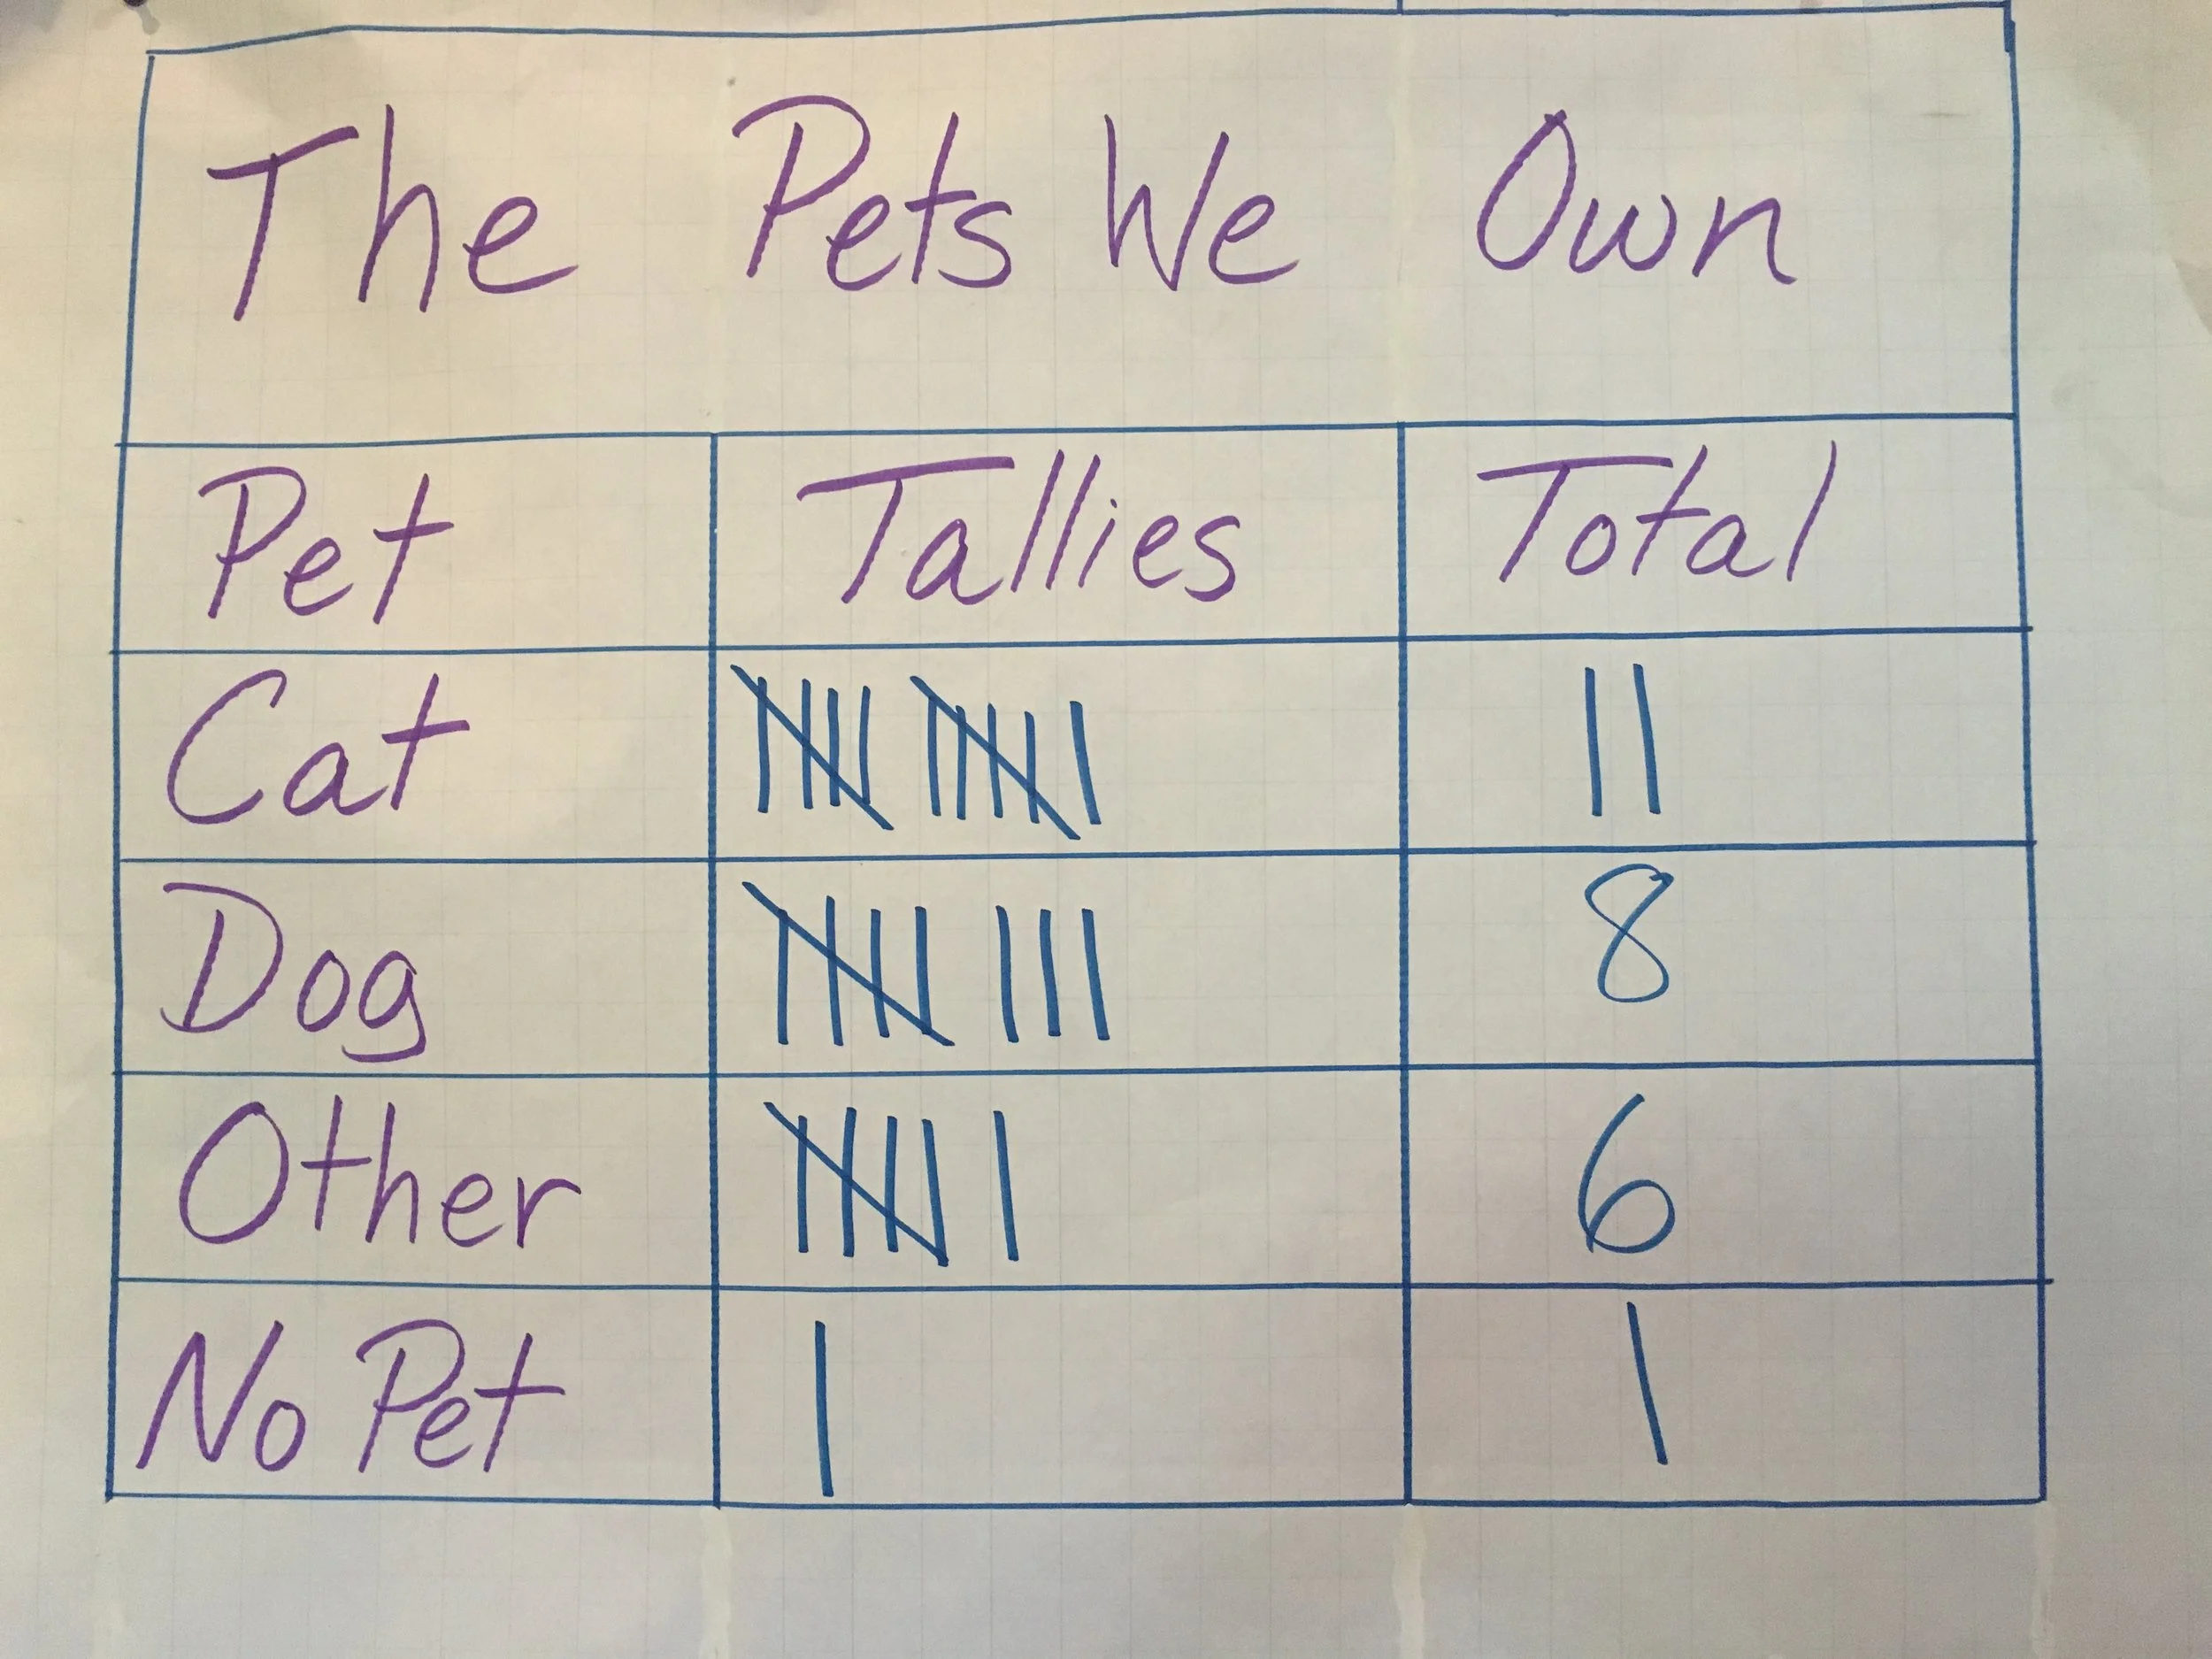 The Pets We Own
Pet Tallies Total
Cat 11
Dog 8
Other 6
No Pet 1